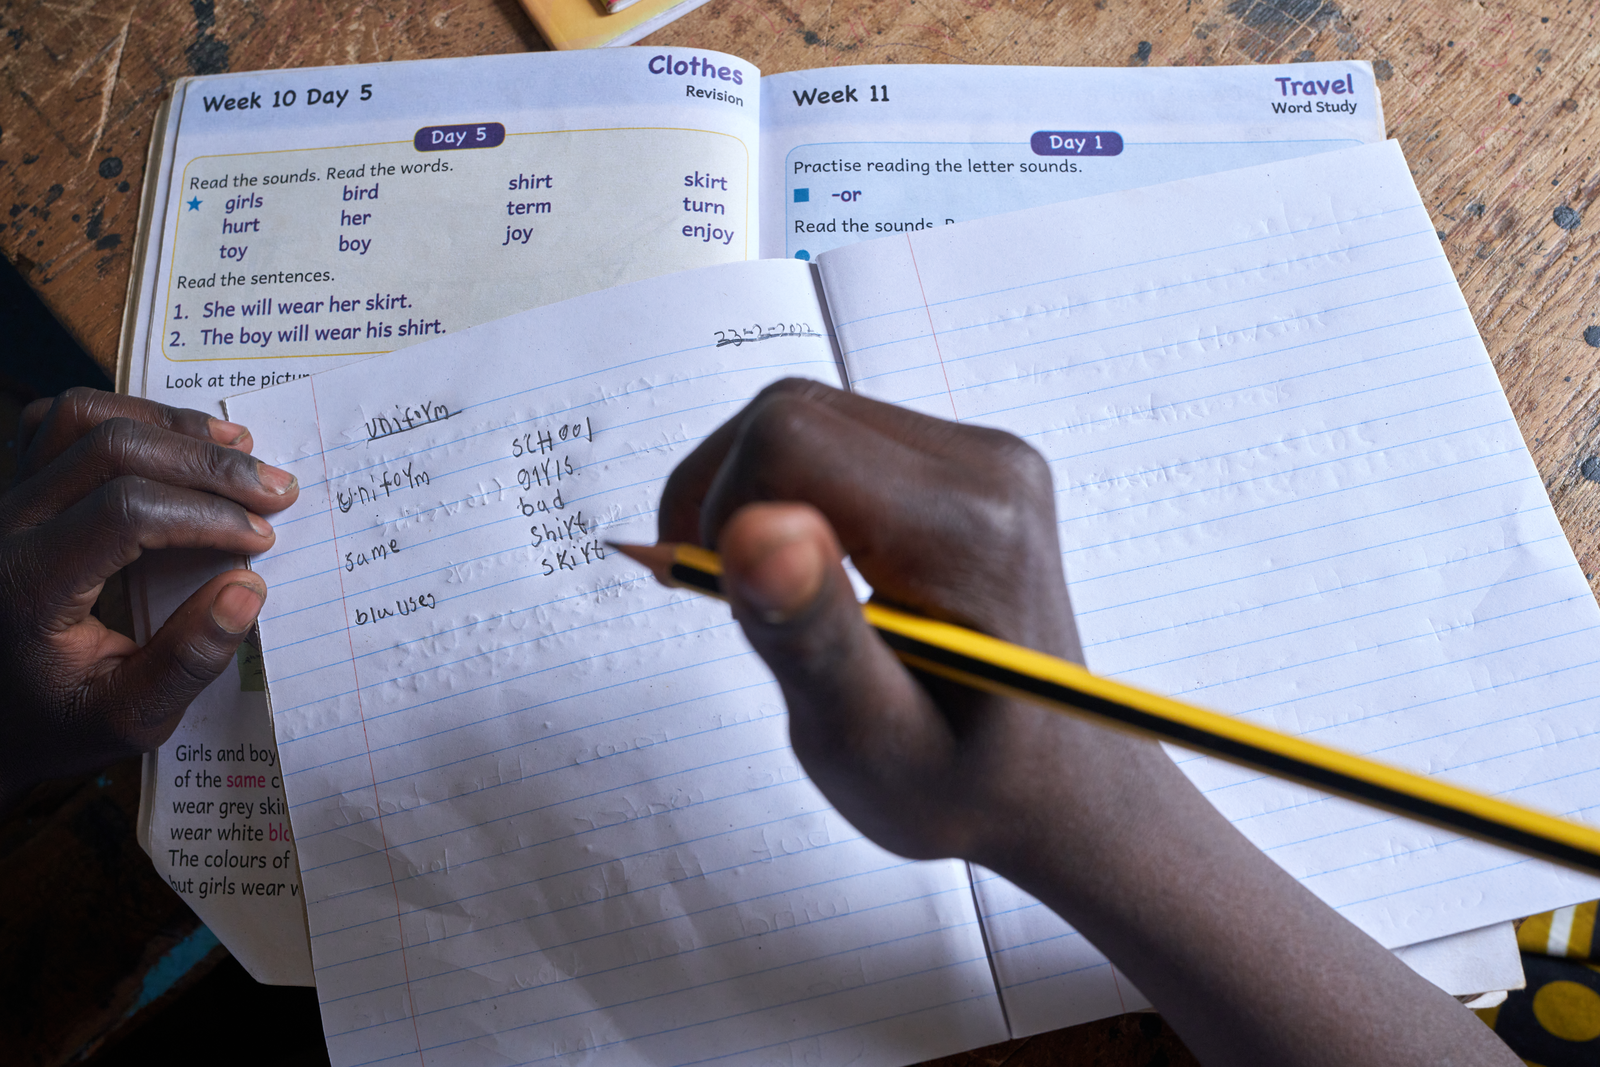 Week 10 Day 5
Clothes
Revision
Day 5
Read the sounds. Read the words.
girls bird shirt skirt
hurt her term turn
toy boy joy enjoy
Read the sentences.
1. She will wear her skirt.
2. The boy will wear his shirt.
Look at the
Girls and
of the same
wear grey
wear white
The colours of
but girls wear
Week 11
Travel
Word Study
Day 1
Practise reading the letter sounds.
-or
Read the sounds.
23-2-2022
uniform
uniform
same
blwuses
SCHOOl
girls.
bad
shirt
skirt